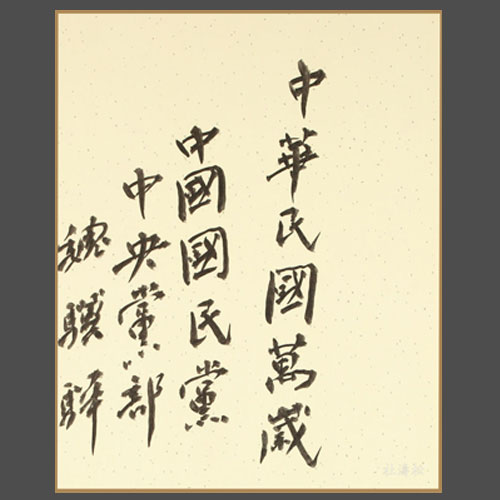 中華民國萬歲
中國國民黨
中央黨部
魏驥騂